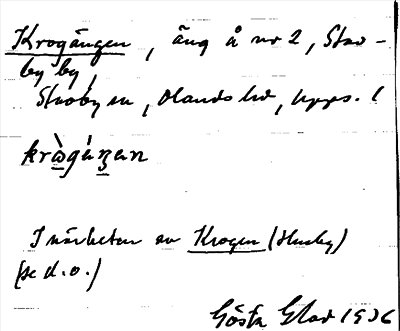 Krogängen, äng å nr 2, Stav-
by by,
Stavby sn, Olands hd, Upps. l
krògáŋan
I närheten av Krogen (Husby)
(se d. o.)
Gösta Elov 1936